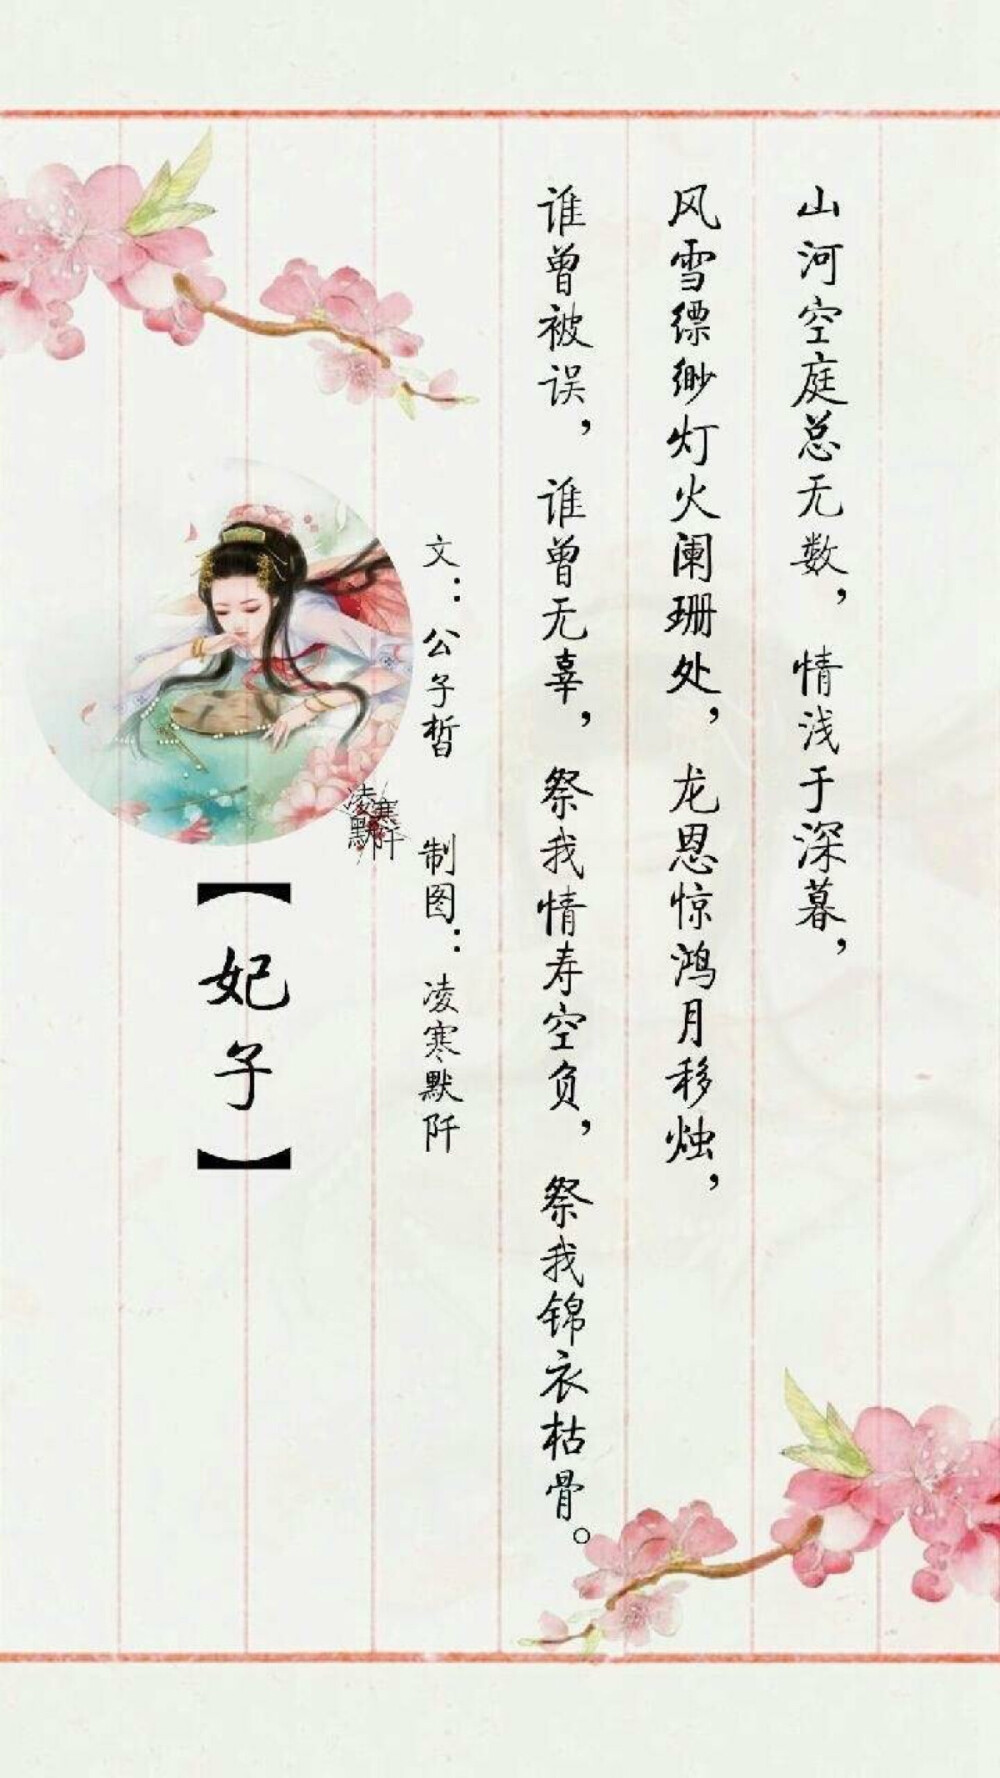 山河空庭总无数，情浅于深暮，
风雪缥缈灯火阑珊处，龙恩惊鸿月移烛，
谁曾被误，谁曾无辜，祭我情寿空负，祭我锦衣枯骨。
文：公子皙 制图：凌寒默阡
凌寒
默阡
【妃子】